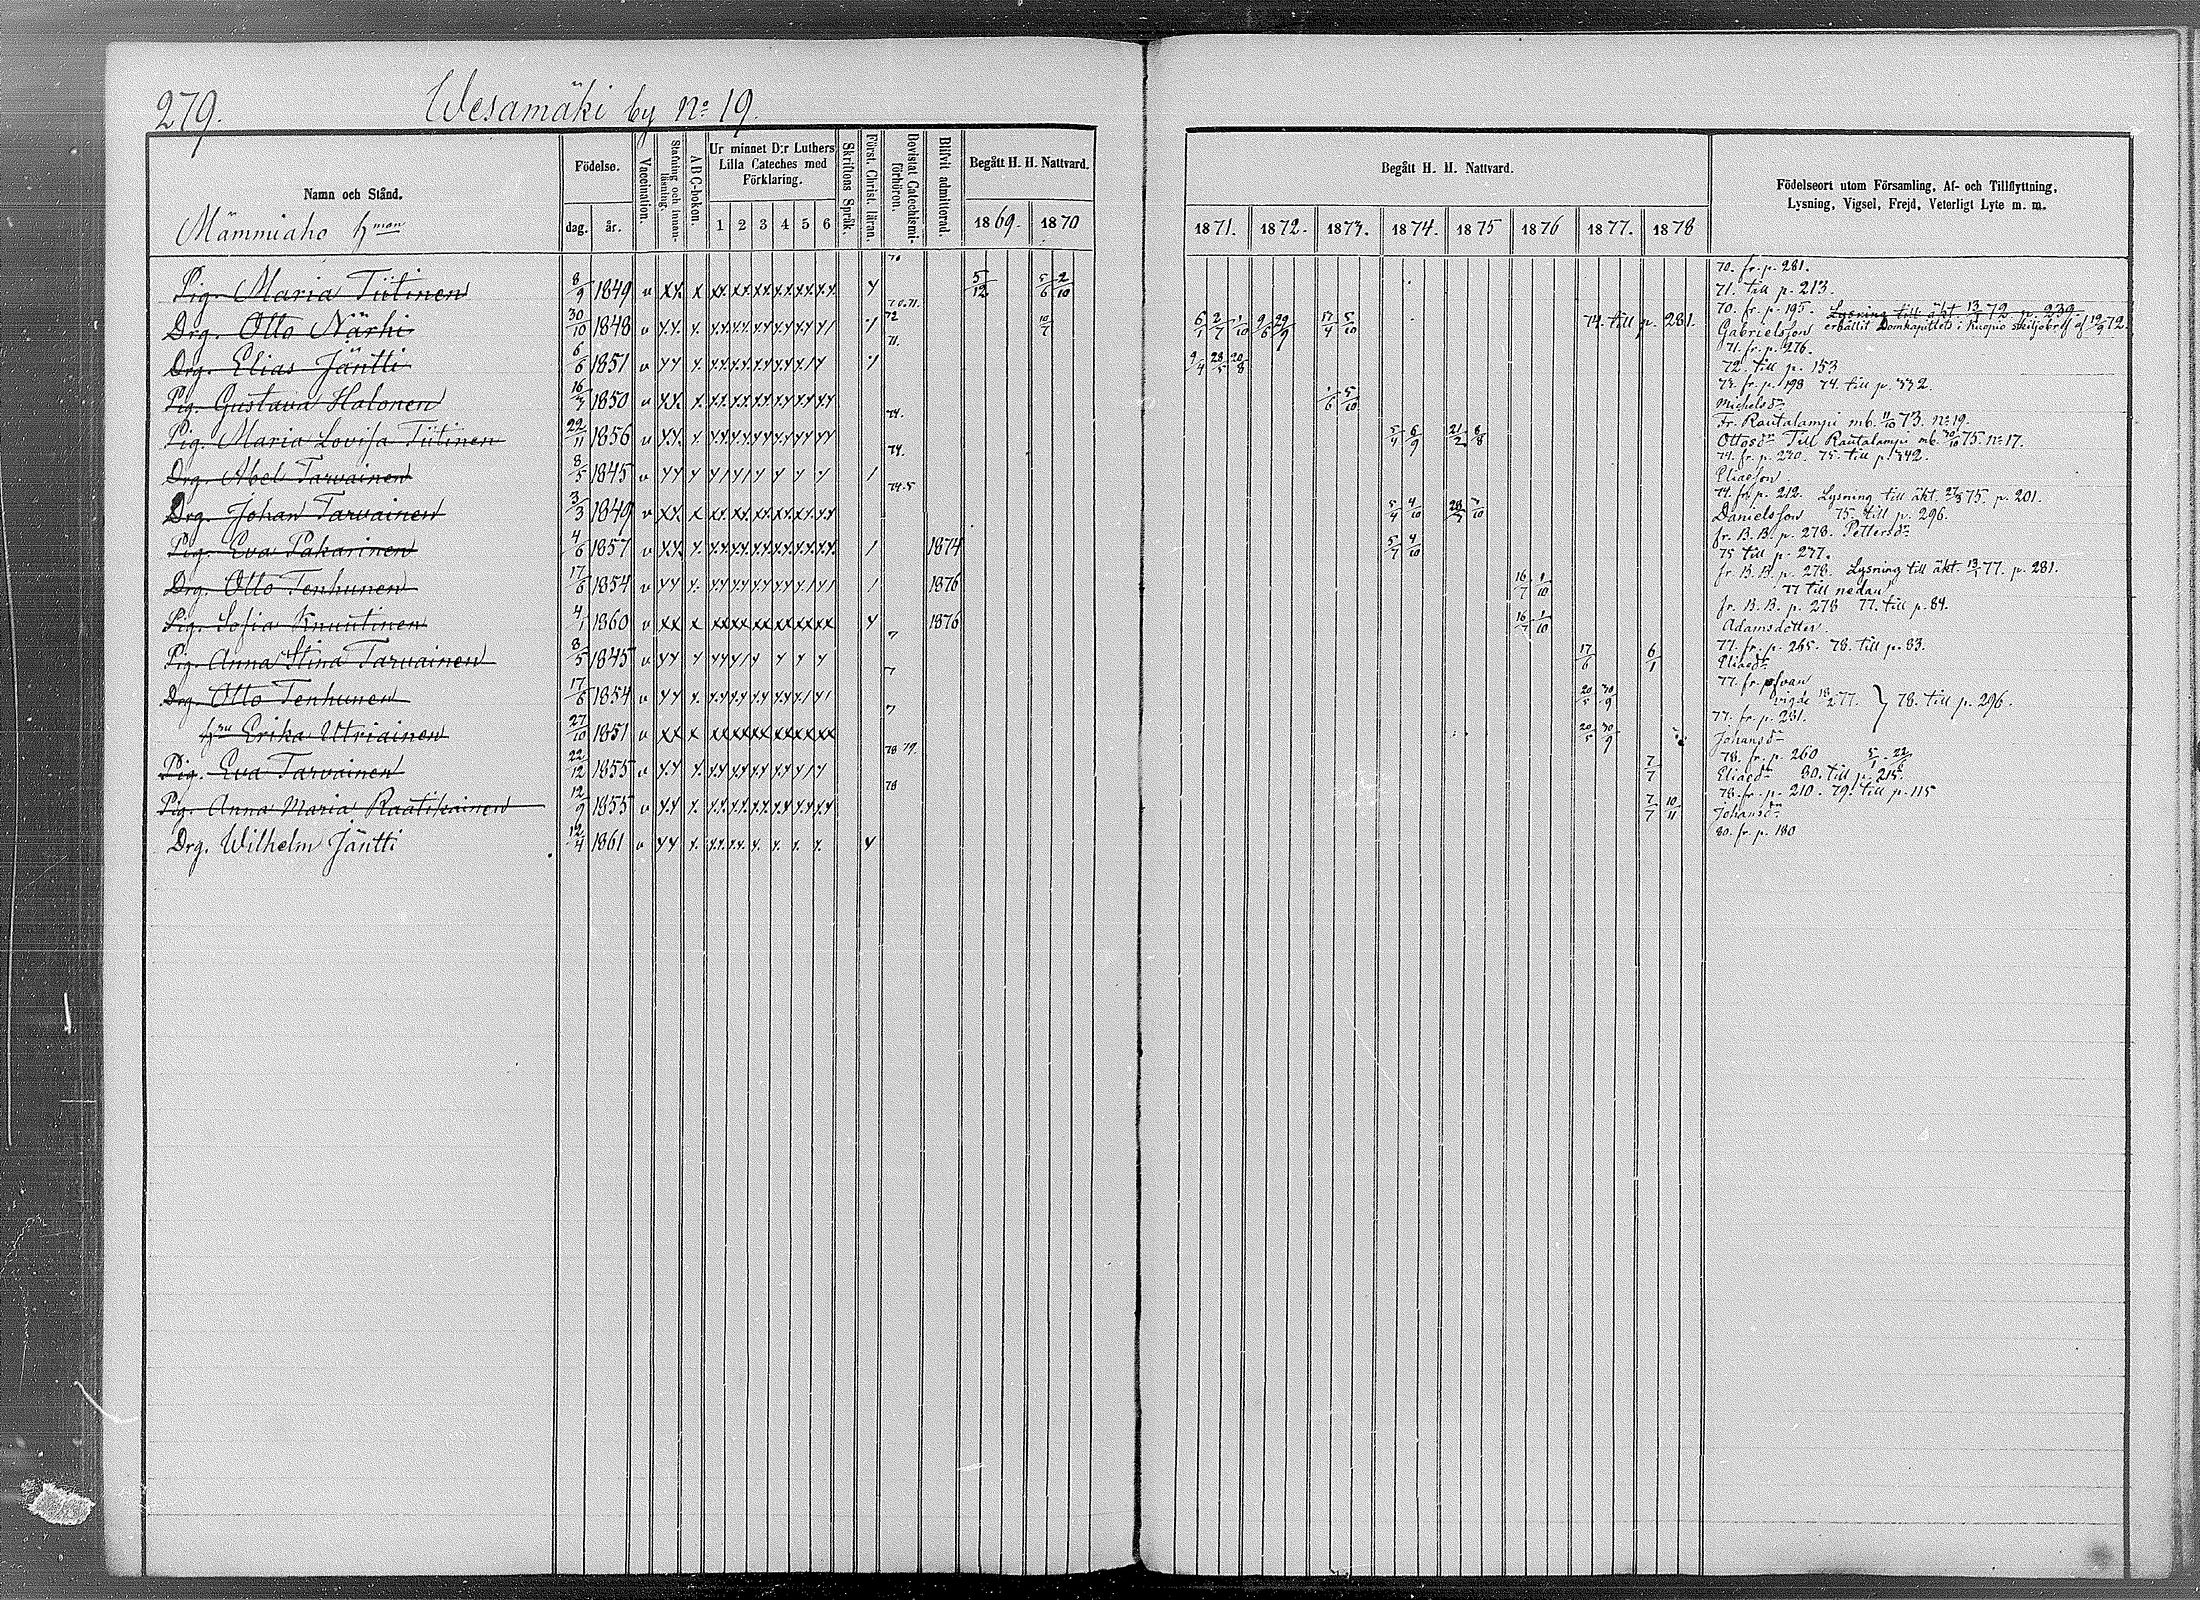 279. Wesamäki by No 19.
Namn och Stånd.
Födelse.
dag. år.
Vaccination.
Stafning och innan-läsning.
ABC-boken.
Ur minnet D:r Luthers Lilla Cateches med Förklaring.
1 2 3 4 5 6
Skriftens Språk.
Först. Christ. läran.
Bevistat Catechismi-förhören.
Blifvit admitterad.
Begått H. H. Nattvard.
1869. 1870
Begått H. H. Nattvard.
1871. 1872. 1873. 1874. 1875 1876 1877. 1878
Födelseort utom Församling, Af- och Tillflyttning,
Lysning, Vigsel, Frejd, Veterligt Lyte m. m.
Mämmiaho
Pig. Maria Tiitinen 8/9 1849 v 70 5/12 5/6 2/10 70. fr. p. 281.
71. till p. 213.
Drg. Otto Närhi 30/10 1848 v 70.71. 72 10/7 74. till p. 281. 70. fr. p. 195. Lysning till äkt. 13/1 72 p. 239
Gabrielsson erhållit Domkapitlets i Kuopio skiljobref af 19/9 72.
Drg. Elias Jäntti 6/6 1851 v 71. 9/4 28/5 20/8 71. fr. p. 276.
72. till p. 153
Pig. Gustava Halonen 16/7 1850 v 1/6 5/10 73. fr. p. 198 74. till p. 332.
Michelsdr
Pig. Maria Lovisa Tiitinen 22/11 1856 v 74. 5/4 6/9 21/2 8/8 Fr. Rautalampi mb. 11/10 73. No 19.
Ottosdr Till Rautalampi mb. 30/10 75. No 17.
Drg. Abel Tarvainen 8/5 1845 v 74. 74. fr. p. 270. 75. till p. 342.
Eliasson
Drg. Johan Tarvainen 3/3 1849 v 74.5 5/4 4/10 74. fr. p. 212. Lysning till äkt. 27/3 75. p. 201.
Danielsson 75. till p. 296.
Pig. Eva Pakarinen 4/6 1857 v 1874 5/7 4/10 fr. B.B. p. 278. Pettersdr
75 till p. 277.
Drg. Otto Tenhunen 17/6 1854 v 1876 16/7 1/10 fr. B.B. p. 278. Lysning till äkt. 13/1 77. p. 281.
77 till nedan
Pig. Sofia Knuutinen 4/1 1860 v 1876 16/7 1/10 fr. B.B. p. 278 77. till p. 84.
Adamsdotter
Pig. Anna Stina Tarvainen 8/5 1845 v 7 17/6 6/1 77. fr. p. 265. 78. till p. 83.
Eliasdr
Drg. Otto Tenhunen 17/6 1854 v 7 20/5 30/9 77. fr. ofvan
vigde 18/2 77. } 78. till p. 296.
hru Erika Utriainen 27/10 1851 v 7 20/5 30/9 77. fr. p. 281.
Johansdr
Pig. Eva Tarvainen 22/12 1855 v 78 79. 7/7 78. fr. p. 260
Eliasdr 80. till p. 215.
Pig. Anna Maria Raatikainen 12/9 1855 v 78 7/7 10/11 78. fr. p. 210. 79. till p. 115
Johansdr
Drg. Wilhelm Jäntti 12/4 1861 v 80. fr. p. 180